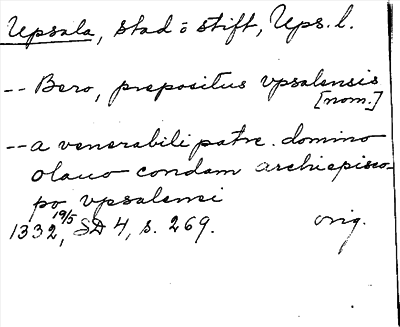 Upsala, stad o stift, Ups. l.
-- Bero, prepositus vpsalensis
[nom.]
-- a venerabili patre. domino
olauo condam archiepisco-
po vpsalensi
1332 19/5, SD 4, s. 269. orig.